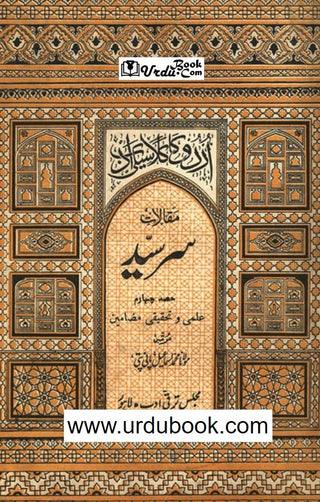 UrduBook.Com
اردو کا کلاسیکی ادب
مقالات
سر سیّد
حصہ چہارم
علمی و تحقیقی مضامین
مرتبہ
مولانا محمد اسماعیل پانی پتی
مجلس ترقی ادب لاہور
www.urdubook.com